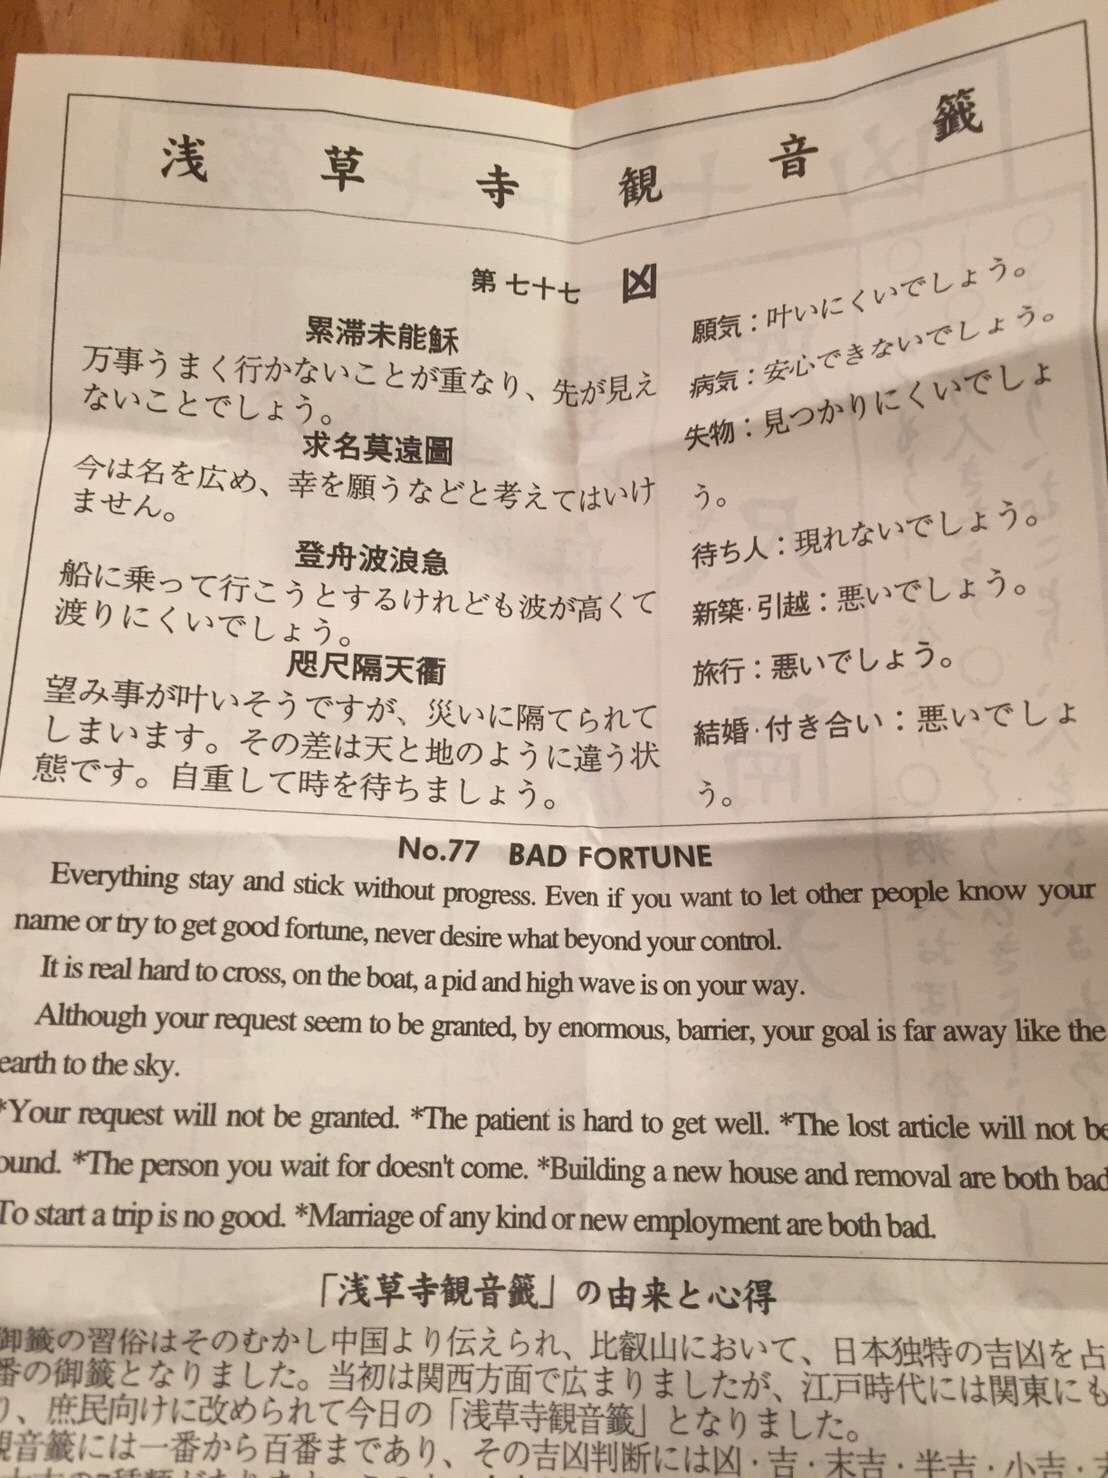 浅草寺観音籤
第七十七 凶
累滞未能穌
万事うまく行かないことが重なり、先が見え
ないことでしょう。
求名莫遠圖
今は名を広め、幸を願うなどと考えてはいけ
ません。
登舟波浪急
船に乗って行こうとするけれども波が高くて
渡りにくいでしょう。
咫尺隔天衢
望み事が叶いそうですが、災いに隔てられて
しまいます。その差は天と地のように違う状
態です。自重して時を待ちましょう。
願気：叶いにくいでしょう。
病気：安心できないでしょう。
失物：見つかりにくいでしょ
う。
待ち人：現れないでしょう。
新築·引越：悪いでしょう。
旅行：悪いでしょう。
結婚·付き合い：悪いでしょ
う。
No.77 BAD FORTUNE
Everything stay and stick without progress. Even if you want to let other people know your
name or try to get good fortune, never desire what beyond your control.
It is real hard to cross, on the boat, a pid and high wave is on your way.
Although your request seem to be granted, by enormous, barrier, your goal is far away like the
earth to the sky.
*Your request will not be granted. *The patient is hard to get well. *The lost article will not be
ound. *The person you wait for doesn't come. *Building a new house and removal are both bad
To start a trip is no good. *Marriage of any kind or new employment are both bad.
「浅草寺観音籤」の由来と心得
御籤の習俗はそのむかし中国より伝えられ、比叡山において、日本独特の吉凶を占
番の御籤となりました。当初は関西方面で広まりましたが、江戸時代には関東にも
り、庶民向けに改められて今日の「浅草寺観音籤」となりました。
観音籤には一番から百番まであり、その吉凶判断には凶・吉・末吉・半吉・小吉・